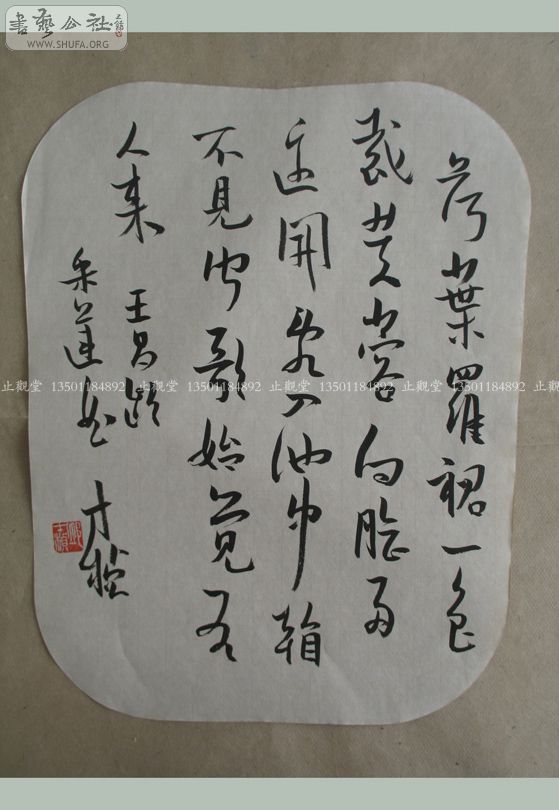 書藝公社
WWW.SHUFA.ORG
荷葉羅裙一色
裁芙蓉向臉兩
邊開亂入池中看
不見聞歌始覺有
人來 王昌齡
采蓮曲 才
止觀堂 13501184892 止觀堂 13501184892 止觀堂 13501184892 止觀堂 13501184892 止觀